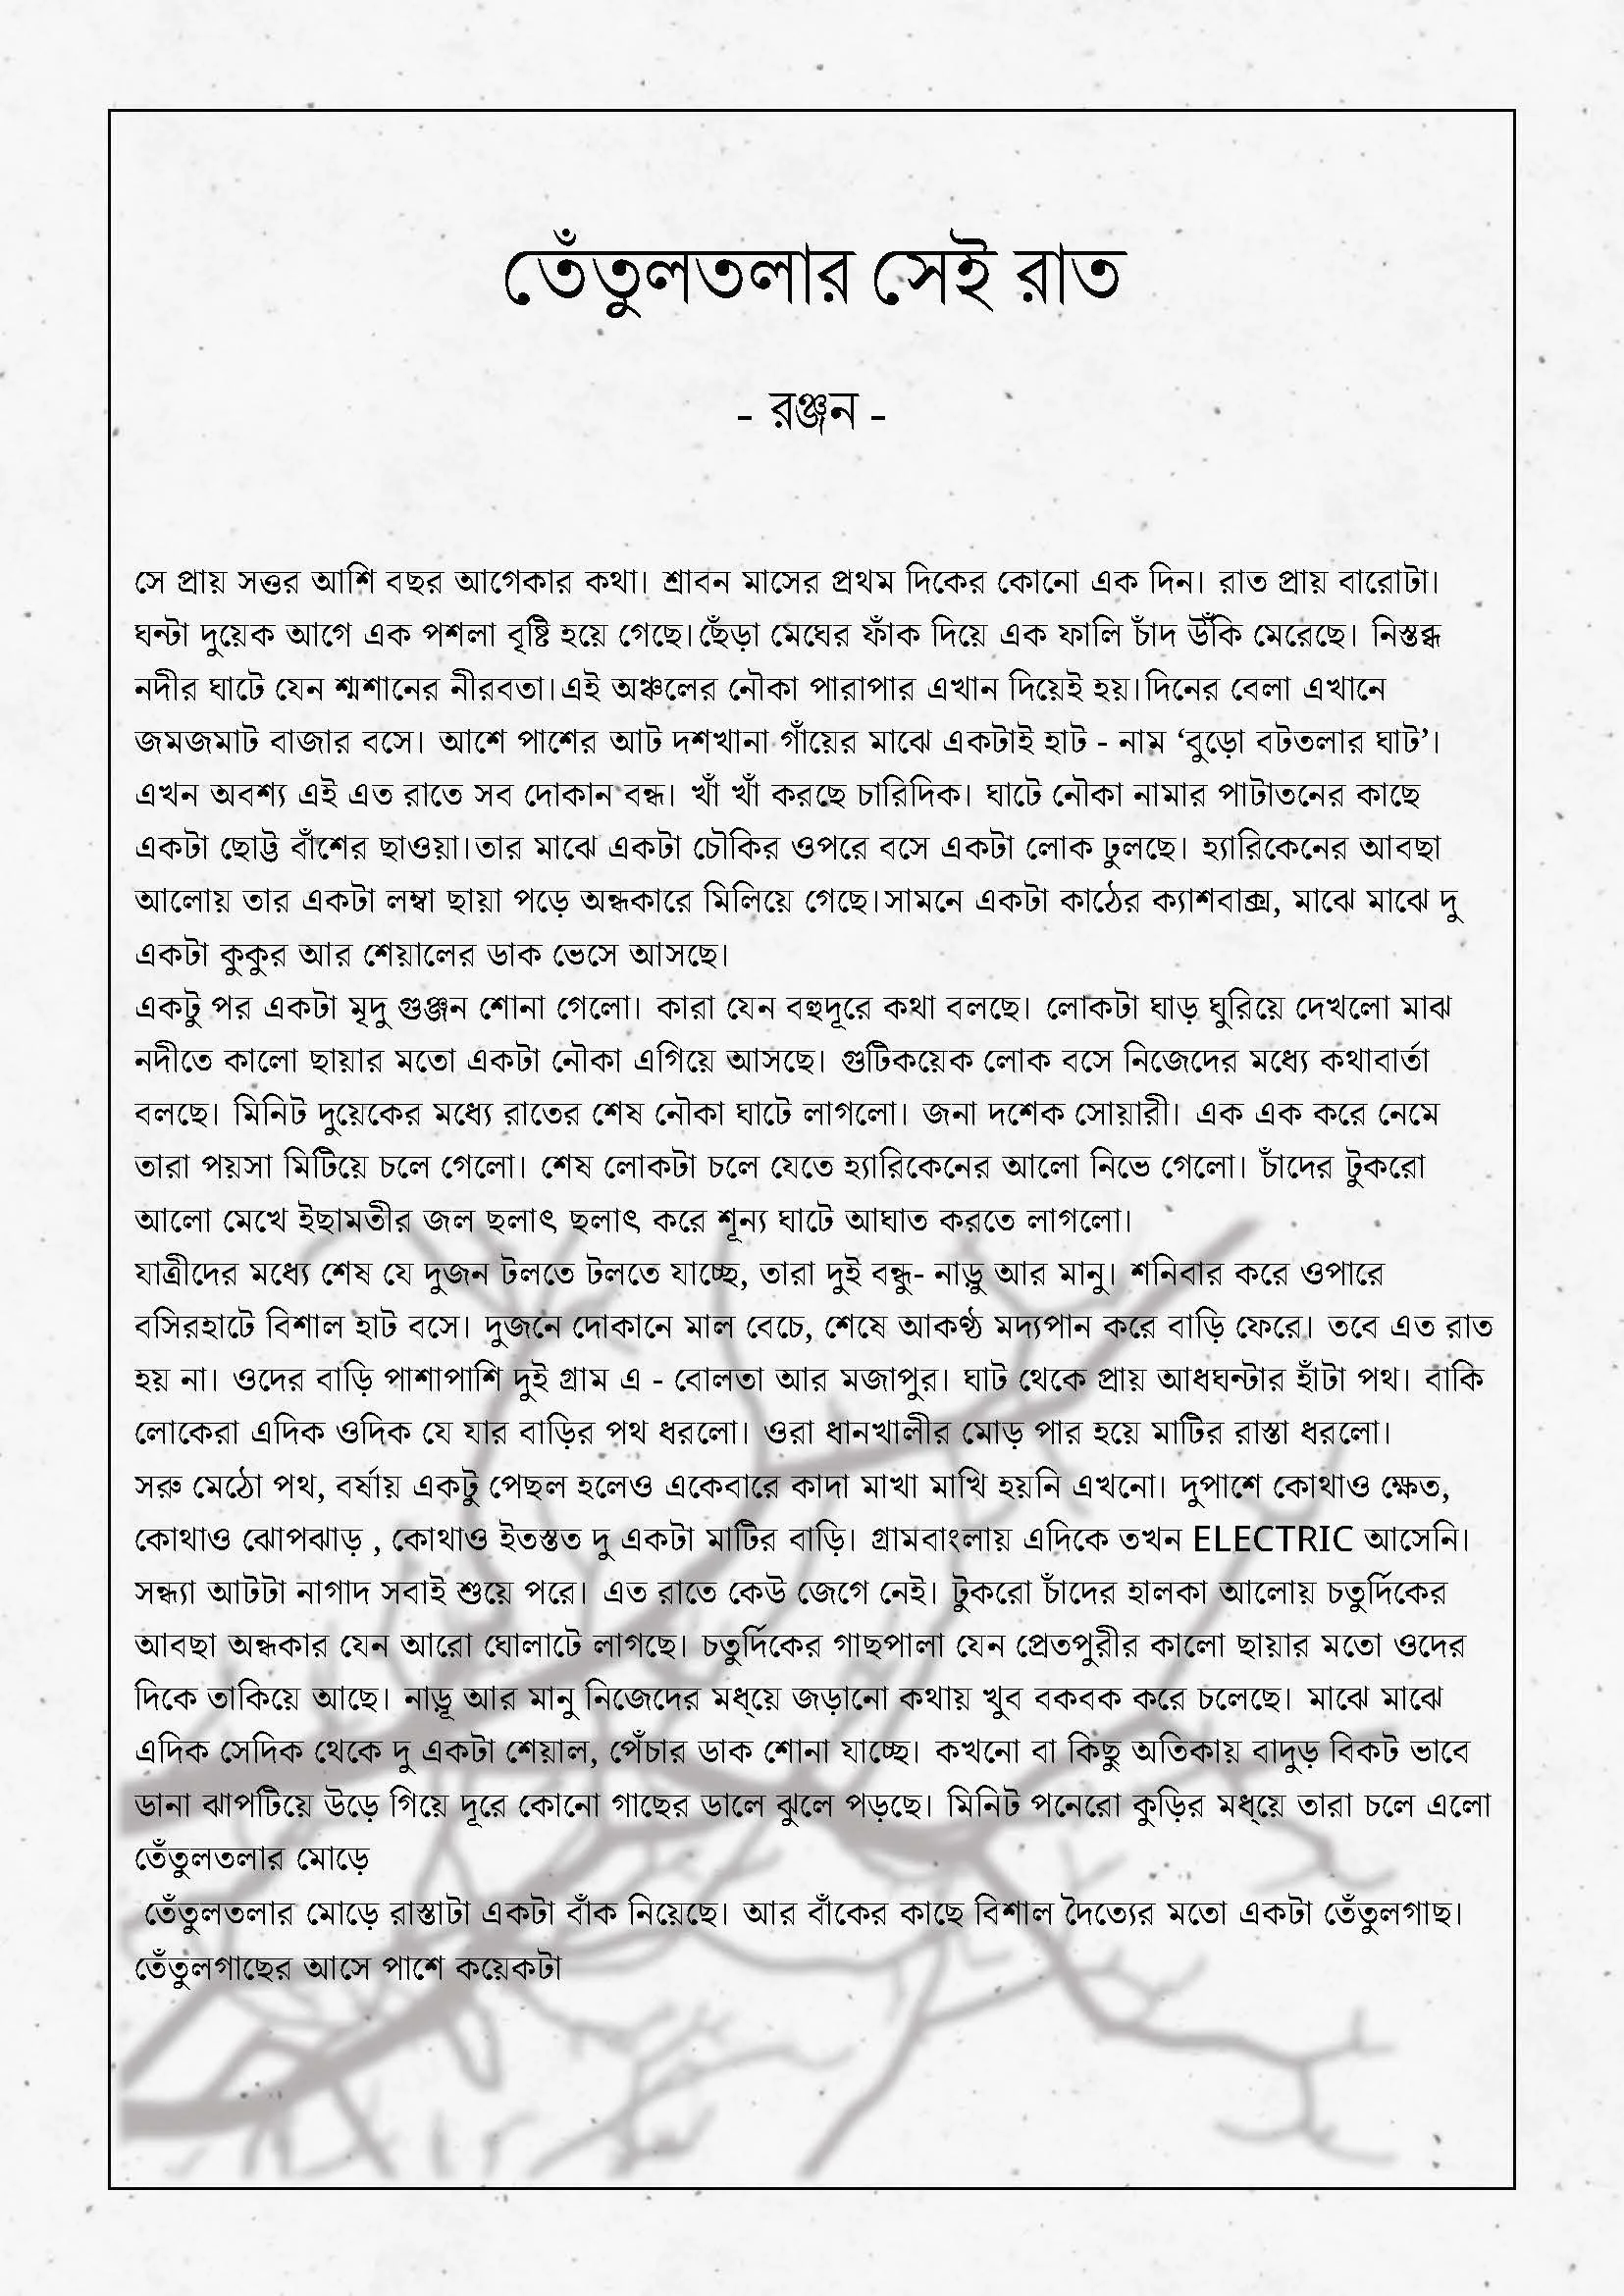 তেঁতুলতলার সেই রাত
- রঞ্জন -
সে প্রায় সত্তর আশি বছর আগেকার কথা। শ্রাবন মাসের প্রথম দিকের কোনো এক দিন। রাত প্রায় বারোটা।
ঘন্টা দুয়েক আগে এক পশলা বৃষ্টি হয়ে গেছে।ছেঁড়া মেঘের ফাঁক দিয়ে এক ফালি চাঁদ উঁকি মেরেছে। নিস্তব্ধ
নদীর ঘাটে যেন শ্মশানের নীরবতা।এই অঞ্চলের নৌকা পারাপার এখান দিয়েই হয়।দিনের বেলা এখানে
জমজমাট বাজার বসে। আশে পাশের আট দশখানা গাঁয়ের মাঝে একটাই হাট - নাম ‘বুড়ো বটতলার ঘাট’।
এখন অবশ্য এই এত রাতে সব দোকান বন্ধ। খাঁ খাঁ করছে চারিদিক। ঘাটে নৌকা নামার পাটাতনের কাছে
একটা ছোট্ট বাঁশের ছাওয়া।তার মাঝে একটা চৌকির ওপরে বসে একটা লোক ঢুলছে। হ্যারিকেনের আবছা
আলোয় তার একটা লম্বা ছায়া পড়ে অন্ধকারে মিলিয়ে গেছে।সামনে একটা কাঠের ক্যাশবাক্স, মাঝে মাঝে দু
একটা কুকুর আর শেয়ালের ডাক ভেসে আসছে।
একটু পর একটা মৃদু গুঞ্জন শোনা গেলো। কারা যেন বহুদূরে কথা বলছে। লোকটা ঘাড় ঘুরিয়ে দেখলো মাঝ
নদীতে কালো ছায়ার মতো একটা নৌকা এগিয়ে আসছে। গুটিকয়েক লোক বসে নিজেদের মধ্যে কথাবার্তা
বলছে। মিনিট দুয়েকের মধ্যে রাতের শেষ নৌকা ঘাটে লাগলো। জনা দশেক সোয়ারী। এক এক করে নেমে
তারা পয়সা মিটিয়ে চলে গেলো। শেষ লোকটা চলে যেতে হ্যারিকেনের আলো নিভে গেলো। চাঁদের টুকরো
আলো মেখে ইছামতীর জল ছলাৎ ছলাৎ করে শূন্য ঘাটে আঘাত করতে লাগলো।
যাত্রীদের মধ্যে শেষ যে দুজন টলতে টলতে যাচ্ছে, তারা দুই বন্ধু- নাড়ু আর মানু। শনিবার করে ওপারে
বসিরহাটে বিশাল হাট বসে। দুজনে দোকানে মাল বেচে, শেষে আকণ্ঠ মদ্যপান করে বাড়ি ফেরে। তবে এত রাত
হয় না। ওদের বাড়ি পাশাপাশি দুই গ্রাম এ - বোলতা আর মজাপুর। ঘাট থেকে প্রায় আধঘন্টার হাঁটা পথ। বাকি
লোকেরা এদিক ওদিক যে যার বাড়ির পথ ধরলো। ওরা ধানখালীর মোড় পার হয়ে মাটির রাস্তা ধরলো।
সরু মেঠো পথ, বর্ষায় একটু পেছল হলেও একেবারে কাদা মাখা মাখি হয়নি এখনো। দুপাশে কোথাও ক্ষেত,
কোথাও ঝোপঝাড় , কোথাও ইতস্তত দু একটা মাটির বাড়ি। গ্রামবাংলায় এদিকে তখন ELECTRIC আসেনি।
সন্ধ্যা আটটা নাগাদ সবাই শুয়ে পরে। এত রাতে কেউ জেগে নেই। টুকরো চাঁদের হালকা আলোয় চতুর্দিকের
আবছা অন্ধকার যেন আরো ঘোলাটে লাগছে। চতুর্দিকের গাছপালা যেন প্রেতপুরীর কালো ছায়ার মতো ওদের
দিকে তাকিয়ে আছে। নাড়ূ আর মানু নিজেদের মধ্য়ে জড়ানো কথায় খুব বকবক করে চলেছে। মাঝে মাঝে
এদিক সেদিক থেকে দু একটা শেয়াল, পেঁচার ডাক শোনা যাচ্ছে। কখনো বা কিছু অতিকায় বাদুড় বিকট ভাবে
ডানা ঝাপটিয়ে উড়ে গিয়ে দূরে কোনো গাছের ডালে ঝুলে পড়ছে। মিনিট পনেরো কুড়ির মধ্য়ে তারা চলে এলো
তেঁতুলতলার মোড়ে
তেঁতুলতলার মোড়ে রাস্তাটা একটা বাঁক নিয়েছে। আর বাঁকের কাছে বিশাল দৈত্যের মতো একটা তেঁতুলগাছ।
তেঁতুলগাছের আসে পাশে কয়েকটা